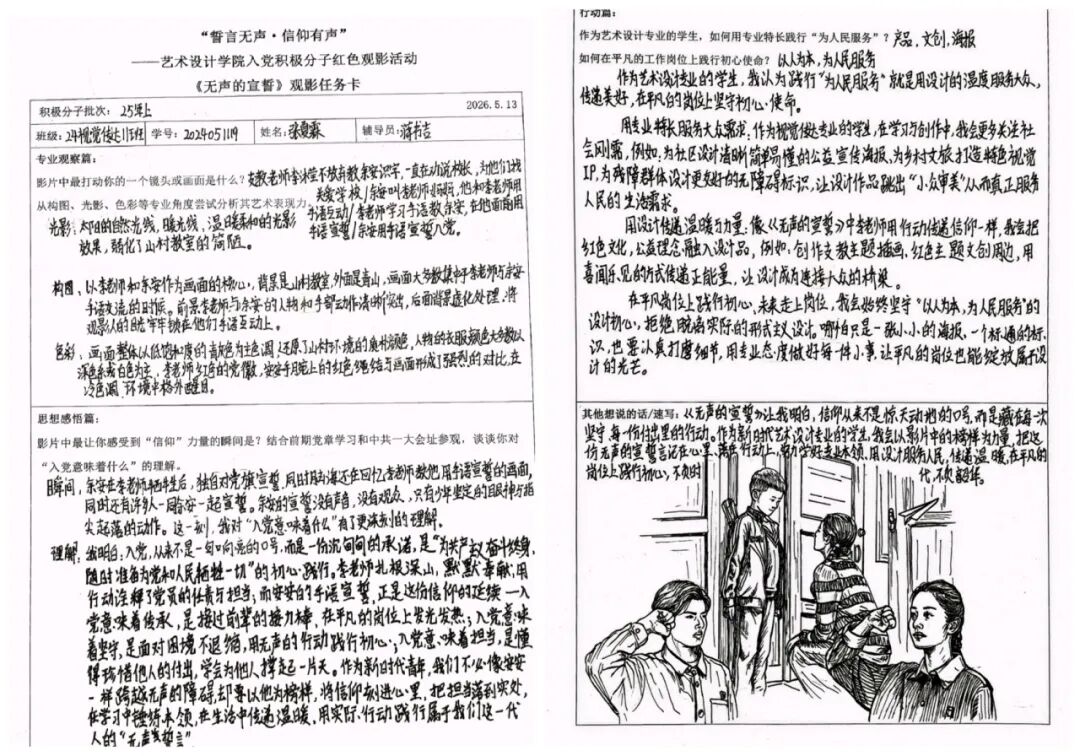 “誓言无声·信仰有声”
——艺术设计学院入党积极分子红色观影活动
《无声的宣誓》观影任务卡
积极分子批次：25年上 2026.5.13
班级：24视觉传达1班 学号：2024051119 姓名： 辅导员：蒋书吉
专业观察篇：
影片中最打动你的一个镜头或画面是什么？支教老师李冰莹不放弃教余安识字，一直在劝说校长，为他们找
从构图、光影、色彩等专业角度尝试分析其艺术表现力。关爱学校/余安叫李老师
光影：太阳的自然光线，暖光线，温暖柔和的光影 手语互动/李老师学习手语教余安，在他面前用
效果，弱化了山村教室的简陋。 手语宣誓/余安用手语宣誓入党。
构图、以李老师和余安作为画面的核心，背景是山村教室，外面是青山，画面大多数集中于李老师与余安
手语交流的时候。前景李老师与余安的人物和手部动作清晰突出，后面背景虚化处理，将
观影人的目光牢牢锁在他们手语互动上。
色彩：画面整体以低饱和度的青灰色为主色调，还原了山村环境的质朴底色，人物的衣服颜色大多数以
深色系或白色为主，李老师红色的党徽，安安手腕上的红色绳结与画面形成了强烈的对比，在
冷色调环境中格外醒目。
思想感悟篇：
影片中最让你感受到“信仰”力量的瞬间是？结合前期党章学习和中共一大会址参观，谈谈你对
“入党意味着什么”的理解。
瞬间，余安在李老师牺牲后，独自对党旗宣誓，同时脑海还在回忆李老师教他用手语宣誓的画面，
同时还有许多人一同余安一起宣誓。余安的宣誓没有声音，没有观众，只有少年坚定的目眼神与指
尖起落的动作。这一刻，我对“入党意味着什么”有了更深刻的理解。
理解：我明白：入党，从来不是一句响亮的口号，而是一份沉甸甸的承诺，是“为共产主义奋斗终身，
随时准备为党和人民牺牲一切”的初心践行。李老师扎根深山，默默奉献，用
行动诠释了党员的责任与担当，而安安的手语宣誓，正是这份信仰的延续——入
党意味着传承，是接过前辈的接力棒，在平凡的岗位上发光发热；入党意味
着坚守，是面对困境不退缩，用无声的行动践行初心；入党意味着担当，是懂
得珍惜他人的付出，学会为他人撑起一片天。作为新时代青年，我们不必像安安
一样跨越无声的障碍，却要以他为榜样，将信仰刻进心里，把担当落到实处，
在学习中锤炼本领，在生活中传递温暖，用实际行动践行属于我们这一代
人的“无声誓言”
行动篇：
作为艺术设计专业的学生，如何用专业特长践行“为人民服务”？产品，文创，海报
如何在平凡的工作岗位上践行初心使命？以人为本，为人民服务
作为艺术设计专业的学生，我认为践行“为人民服务”就是用设计的温度服务大众，
传递美好，在平凡的岗位上坚守初心使命。
用专业特长服务大众需求：作为视觉传达专业的学生，在学习与创作中，我会更多关注社
会刚需，例如：为社区设计清晰简单易懂的公益宣传海报、为乡村文旅打造特色视觉
IP、为残障群体设计更友好的无障碍标识，让设计作品跳出“小众审美”从而真正服务
人民的生活需求。
用设计传递温暖与力量：像《无声的宣誓》中李老师用行动传递信仰一样，我会把
红色文化，公益理念融入设计品，例如：创作支教主题插画、红色主题文创周边，用
喜闻乐见的方式传递正能量，让设计成为连接大众的桥梁。
在平凡岗位上践行初心、未来走上岗位，我会始终坚守“以人为本，为人民服务”的
设计初心，拒绝脱离实际的形式主义设计。哪怕只是一张小小的海报、一个标通的标
识，也要认真打磨细节，用专业态度做好每一件小事，让平凡的岗位也能绽放属于设
计的光芒。
其他想说的话/速写：《无声的宣誓》让我明白，信仰从来不是惊天动地的口号，而是藏在每一次
坚守、每一份付出里的行动。作为新时代艺术设计专业的学生，我会以影片中的榜样为力量，把这
份无声的誓言记在心里、落在行动上，努力学好专业本领，用设计服务人民，传递温暖，在平凡的
岗位上践行初心，不负时代，不负韶华。